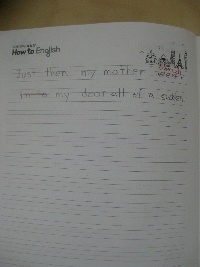 How to English
Just then, my mother
my door all of a sudden